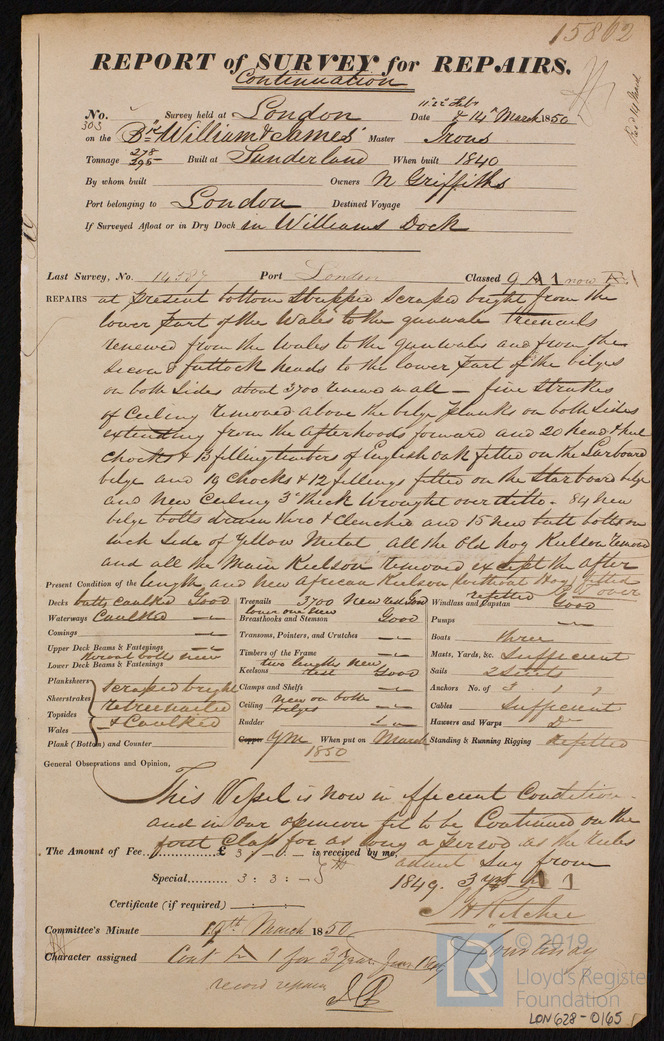 15802
REPORT of SURVEY for REPAIRS.
Continuation
No. 303 Survey held at London Date 11th 22 Feb & 14th March 1850
on the Bn William & James Master Irons
Tonnage 278 295 Built at Sunderland When built 1840
By whom built Owners N Griffiths
Port belonging to London Destined Voyage
If Surveyed Afloat or in Dry Dock in Williams Dock
Last Survey, No. Port London Classed 9 A 1 now
REPAIRS at Present bottom Stripped Scraped bright from the
lower Part of the Wales to the gunwale Treenails
renewed from the Wales to the gunwales and from the
Second futtock heads to the lower Part of the bilges
on both Sides about 3700 renewed in all — five Strakes
of Ceiling removed above the bilge Planks on both Sides
extending from the Afterhoods forward and 20 head & heel
Chocks & 13 filling timbers of English oak fitted on the Larboard
bilge and 19 Chocks & 12 fillings fitted on the Starboard bilge
and New Ceiling 3" thick wrought over ditto - 84 New
bilge bolts driven thro & Clenched and 15 new butt bolts on
each Side of Yellow Metal all the Old hog Kelson removed
and all the Main Keelson removed except the after
Present Condition of the length, and New African Keelson without Hog fitted
over
Decks butts caulked Good
Waterways Caulked
Comings
Upper Deck Beams & Fastenings
throat bolts new
Lower Deck Beams & Fastenings
Plansheers
Sheerstrakes
Topsides
Wales
Plank (Bottom) and Counter
scraped bright
retreenailed
& Caulked
Treenails 3700 New rest Good
lower one new
Breasthooks and Stemson Good
Transoms, Pointers, and Crutches
Timbers of the Frame
two lengths new
Keelsons rest Good
Clamps and Shelfs
Ceiling new on both bilges
Rudder
Copper YM When put on March
1850
refitted
Windlass and Capstan Good
Pumps
Boats three
Masts, Yards, &c. Sufficient
Sails 2 Suits
Anchors No. of 3 . 1 . 1
Cables Sufficient
Hawsers and Warps Do
Standing & Running Rigging Refitted
General Observations and Opinion,
This Vessel is now in efficient Condition
and in our opinion fit to be Continued on the
first Class for as long a period as the rules
admit Say from
1849. 3 yrs A 1
The Amount of Fee £ 3 : - : - is received by me,
Special 3 : 3 : -
Certificate (if required)
J H Ritchie
J Courtenay
Committee's Minute 19th March 1850
Character assigned Cont A 1 for 3 Years from 1849
record repairs
© 2019
Lloyd's Register
Foundation
LR
LON628-0165